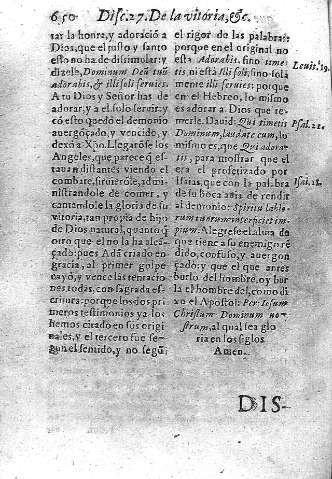 650 Disc.27. De la vitoria, &c.
tar la honra, y adoració a
Dios, que el justo y santo
esto no ha de disimular: y
dizele, Dominum Deū tuū
adorabis, & illi soli seruies.
A tu Dios y Señor has de
adorar, y a el solo seruir, y
có esto quedó el demonio
auergōçado, y vencido, y
dexó a Xp̄o. Llegaróse los
Angeles, que parece q̄ es
tauan distantes viendo el
combate, siruiéróle, admi-
nistrandole de comer, y
cantandole la gloria de su
vitoria, tan propia de hijo
de Dios natural, quanto q̄
otro que el no la ha alcá
çado: pues Adā criado en
gracia, al primer golpe
cayó, y vence las tentacio
nes todas, con sagrada es
critura: porque los dos pri
meros testimonios ya los
hemos citado en sus origi
nales, y el tercero fue se-
gun el sentido, y no segū
el rigor de las palabras:
porque en el original no
està Adorabis, sino timet
tis ni està Illi soli, sino sola
mente illi seruies: porque
en el Hebreo, lo mismo
es adorar a Dios que te-
merle. Dauid: Qui timetis
Dominum, laudate eum, lo
mismo es, que Qui adora-
tis, para mostrar que el
era el profetizado por
Isaias, que con la palabra
de su boca auia de rendir
al demonio: Spiritu labio-
rum suorum interficiet im-
pium. Alegrese el alma de
que tiene a su enemigo rē
dido, confuso, y auergon
çado: y que el que antes
burló del hombre, oy bur
la el hombre del, como di
xo el Apostol: Per Iesum
Christum Dominum no-
strum, al qual sea glo
ria en los siglos
Amen.
Leuit. 19.
Psal. 21.
Isai. 11.
DIS-